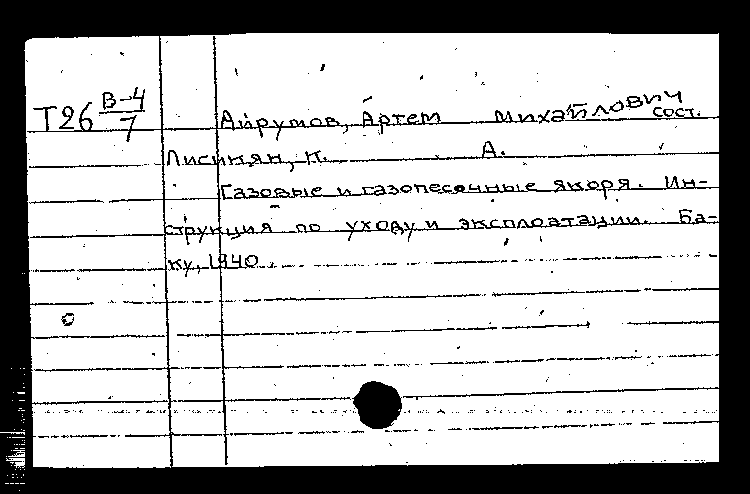 Т26 В-4/7
Айрумов, Артем Михайлович сост.
Лисинян, К. А.
Газовые и газопесочные якоря. Ин-
струкция по уходу и эксплоатации. Ба-
ку, 1940.